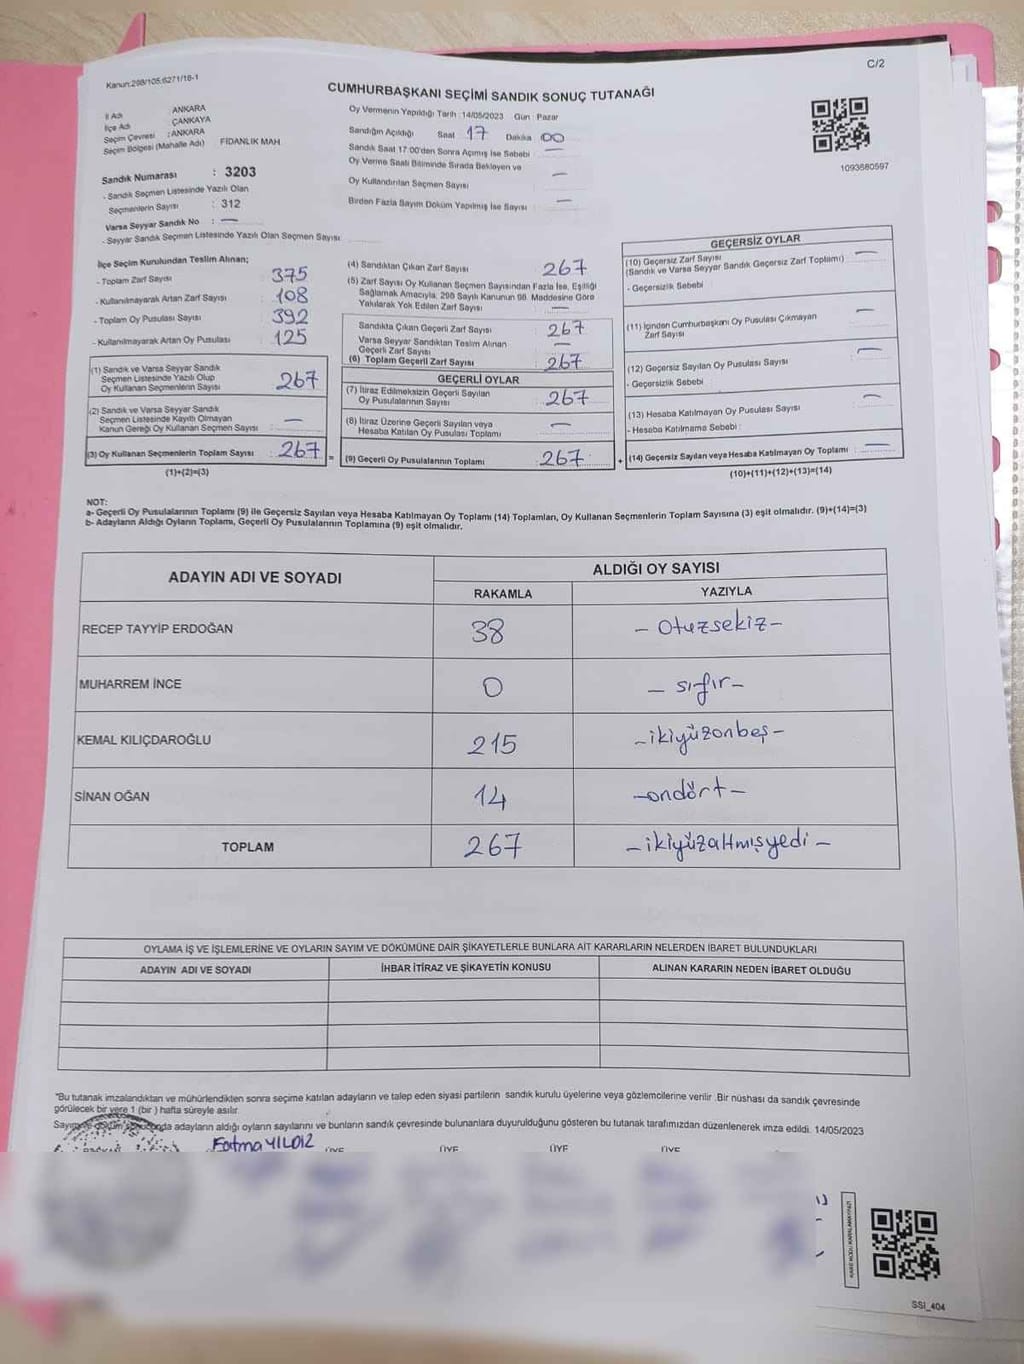 Kanun:298/105;6271/16-1
C/2
CUMHURBAŞKANI SEÇİMİ SANDIK SONUÇ TUTANAĞI
İl Adı ANKARA
İlçe Adı ÇANKAYA
Seçim Çevresi : ANKARA
Seçim Bölgesi (Mahalle Adı) FİDANLIK MAH
Sandık Numarası : 3203
- Sandık Seçmen Listesinde Yazılı Olan
Seçmenlerin Sayısı : 312
Varsa Seyyar Sandık No : —
- Seyyar Sandık Seçmen Listesinde Yazılı Olan Seçmen Sayısı
Oy Vermenin Yapıldığı Tarih :14/05/2023 Gün Pazar
Sandığın Açıldığı Saat 17 Dakika 00
Sandık Saat 17:00'den Sonra Açımış İse Sebebi —
Oy Verme Saati Bitiminde Sırada Bekleyen ve
Oy Kullandırılan Seçmen Sayısı —
Birden Fazla Sayım Döküm Yapılmış İse Sayısı —
1093680597
İlçe Seçim Kurulundan Teslim Alınan;
- Toplam Zarf Sayısı : 375
- Kullanılmayarak Artan Zarf Sayısı : 108
- Toplam Oy Pusulası Sayısı : 392
- Kullanılmayarak Artan Oy Pusulası : 125
(1) Sandık ve Varsa Seyyar Sandık
Seçmen Listesinde Yazılı Olup
Oy Kullanan Seçmenlerin Sayısı : 267
(2) Sandık ve Varsa Seyyar Sandık
Seçmen Listesinde Kayıtlı Olmayan
Kanun Gereği Oy Kullanan Seçmen Sayısı : —
(3) Oy Kullanan Seçmenlerin Toplam Sayısı : 267
(1)+(2)=(3)
(4) Sandıktan Çıkan Zarf Sayısı : 267
(5) Zarf Sayısı Oy Kullanan Seçmen Sayısından Fazla İse, Eşitliği
Sağlamak Amacıyla, 298 Sayılı Kanunun 98. Maddesine Göre
Yakılarak Yok Edilen Zarf Sayısı : —
Sandıkta Çıkan Geçerli Zarf Sayısı : 267
Varsa Seyyar Sandıktan Teslim Alınan
Geçerli Zarf Sayısı : —
(6) Toplam Geçerli Zarf Sayısı : 267
GEÇERLİ OYLAR
(7) İtiraz Edilmeksizin Geçerli Sayılan
Oy Pusulalarının Sayısı : 267
(8) İtiraz Üzerine Geçerli Sayılan veya
Hesaba Katılan Oy Pusulası Toplamı : —
= (9) Geçerli Oy Pusulalarının Toplamı : 267
GEÇERSİZ OYLAR
(10) Geçersiz Zarf Sayısı : —
(Sandık ve Varsa Seyyar Sandık Geçersiz Zarf Toplamı)
- Geçersizlik Sebebi
(11) İçinden Cumhurbaşkanı Oy Pusulası Çıkmayan : —
Zarf Sayısı
(12) Geçersiz Sayılan Oy Pusulası Sayısı : —
- Geçersizlik Sebebi
(13) Hesaba Katılmayan Oy Pusulası Sayısı : —
- Hesaba Katılmama Sebebi :
+ (14) Geçersiz Sayılan veya Hesaba Katılmayan Oy Toplamı : —
(10)+(11)+(12)+(13)=(14)
NOT:
a- Geçerli Oy Pusulalarının Toplamı (9) ile Geçersiz Sayılan veya Hesaba Katılmayan Oy Toplamı (14) Toplamları, Oy Kullanan Seçmenlerin Toplam Sayısına (3) eşit olmalıdır. (9)+(14)=(3)
b- Adayların Aldığı Oyların Toplamı, Geçerli Oy Pusulalarının Toplamına (9) eşit olmalıdır.
ADAYIN ADI VE SOYADI
ALDIĞI OY SAYISI
RAKAMLA YAZIYLA
RECEP TAYYİP ERDOĞAN 38 – Otuzsekiz –
MUHARREM İNCE 0 – sıfır –
KEMAL KILIÇDAROĞLU 215 – ikiyüzonbeş –
SİNAN OĞAN 14 – ondört –
TOPLAM 267 – ikiyüzaltmışyedi –
OYLAMA İŞ VE İŞLEMLERİNE VE OYLARIN SAYIM VE DÖKÜMÜNE DAİR ŞİKAYETLERLE BUNLARA AİT KARARLARIN NELERDEN İBARET BULUNDUKLARI
ADAYIN ADI VE SOYADI İHBAR İTİRAZ VE ŞİKAYETİN KONUSU ALINAN KARARIN NEDEN İBARET OLDUĞU
*Bu tutanak imzalandıktan ve mühürlendikten sonra seçime katılan adayların ve talep eden siyasi partilerin sandık kurulu üyelerine veya gözlemcilerine verilir .Bir nüshası da sandık çevresinde
görülecek bir yere 1 (bir ) hafta süreyle asılır.
Sayım ve döküm sonucunda adayların aldığı oyların sayılarını ve bunların sandık çevresinde bulunanlara duyurulduğunu gösteren bu tutanak tarafımızdan düzenlenerek imza edildi. 14/05/2023
Fatma YILDIZ
ÜYE ÜYE ÜYE ÜYE
SSİ_404